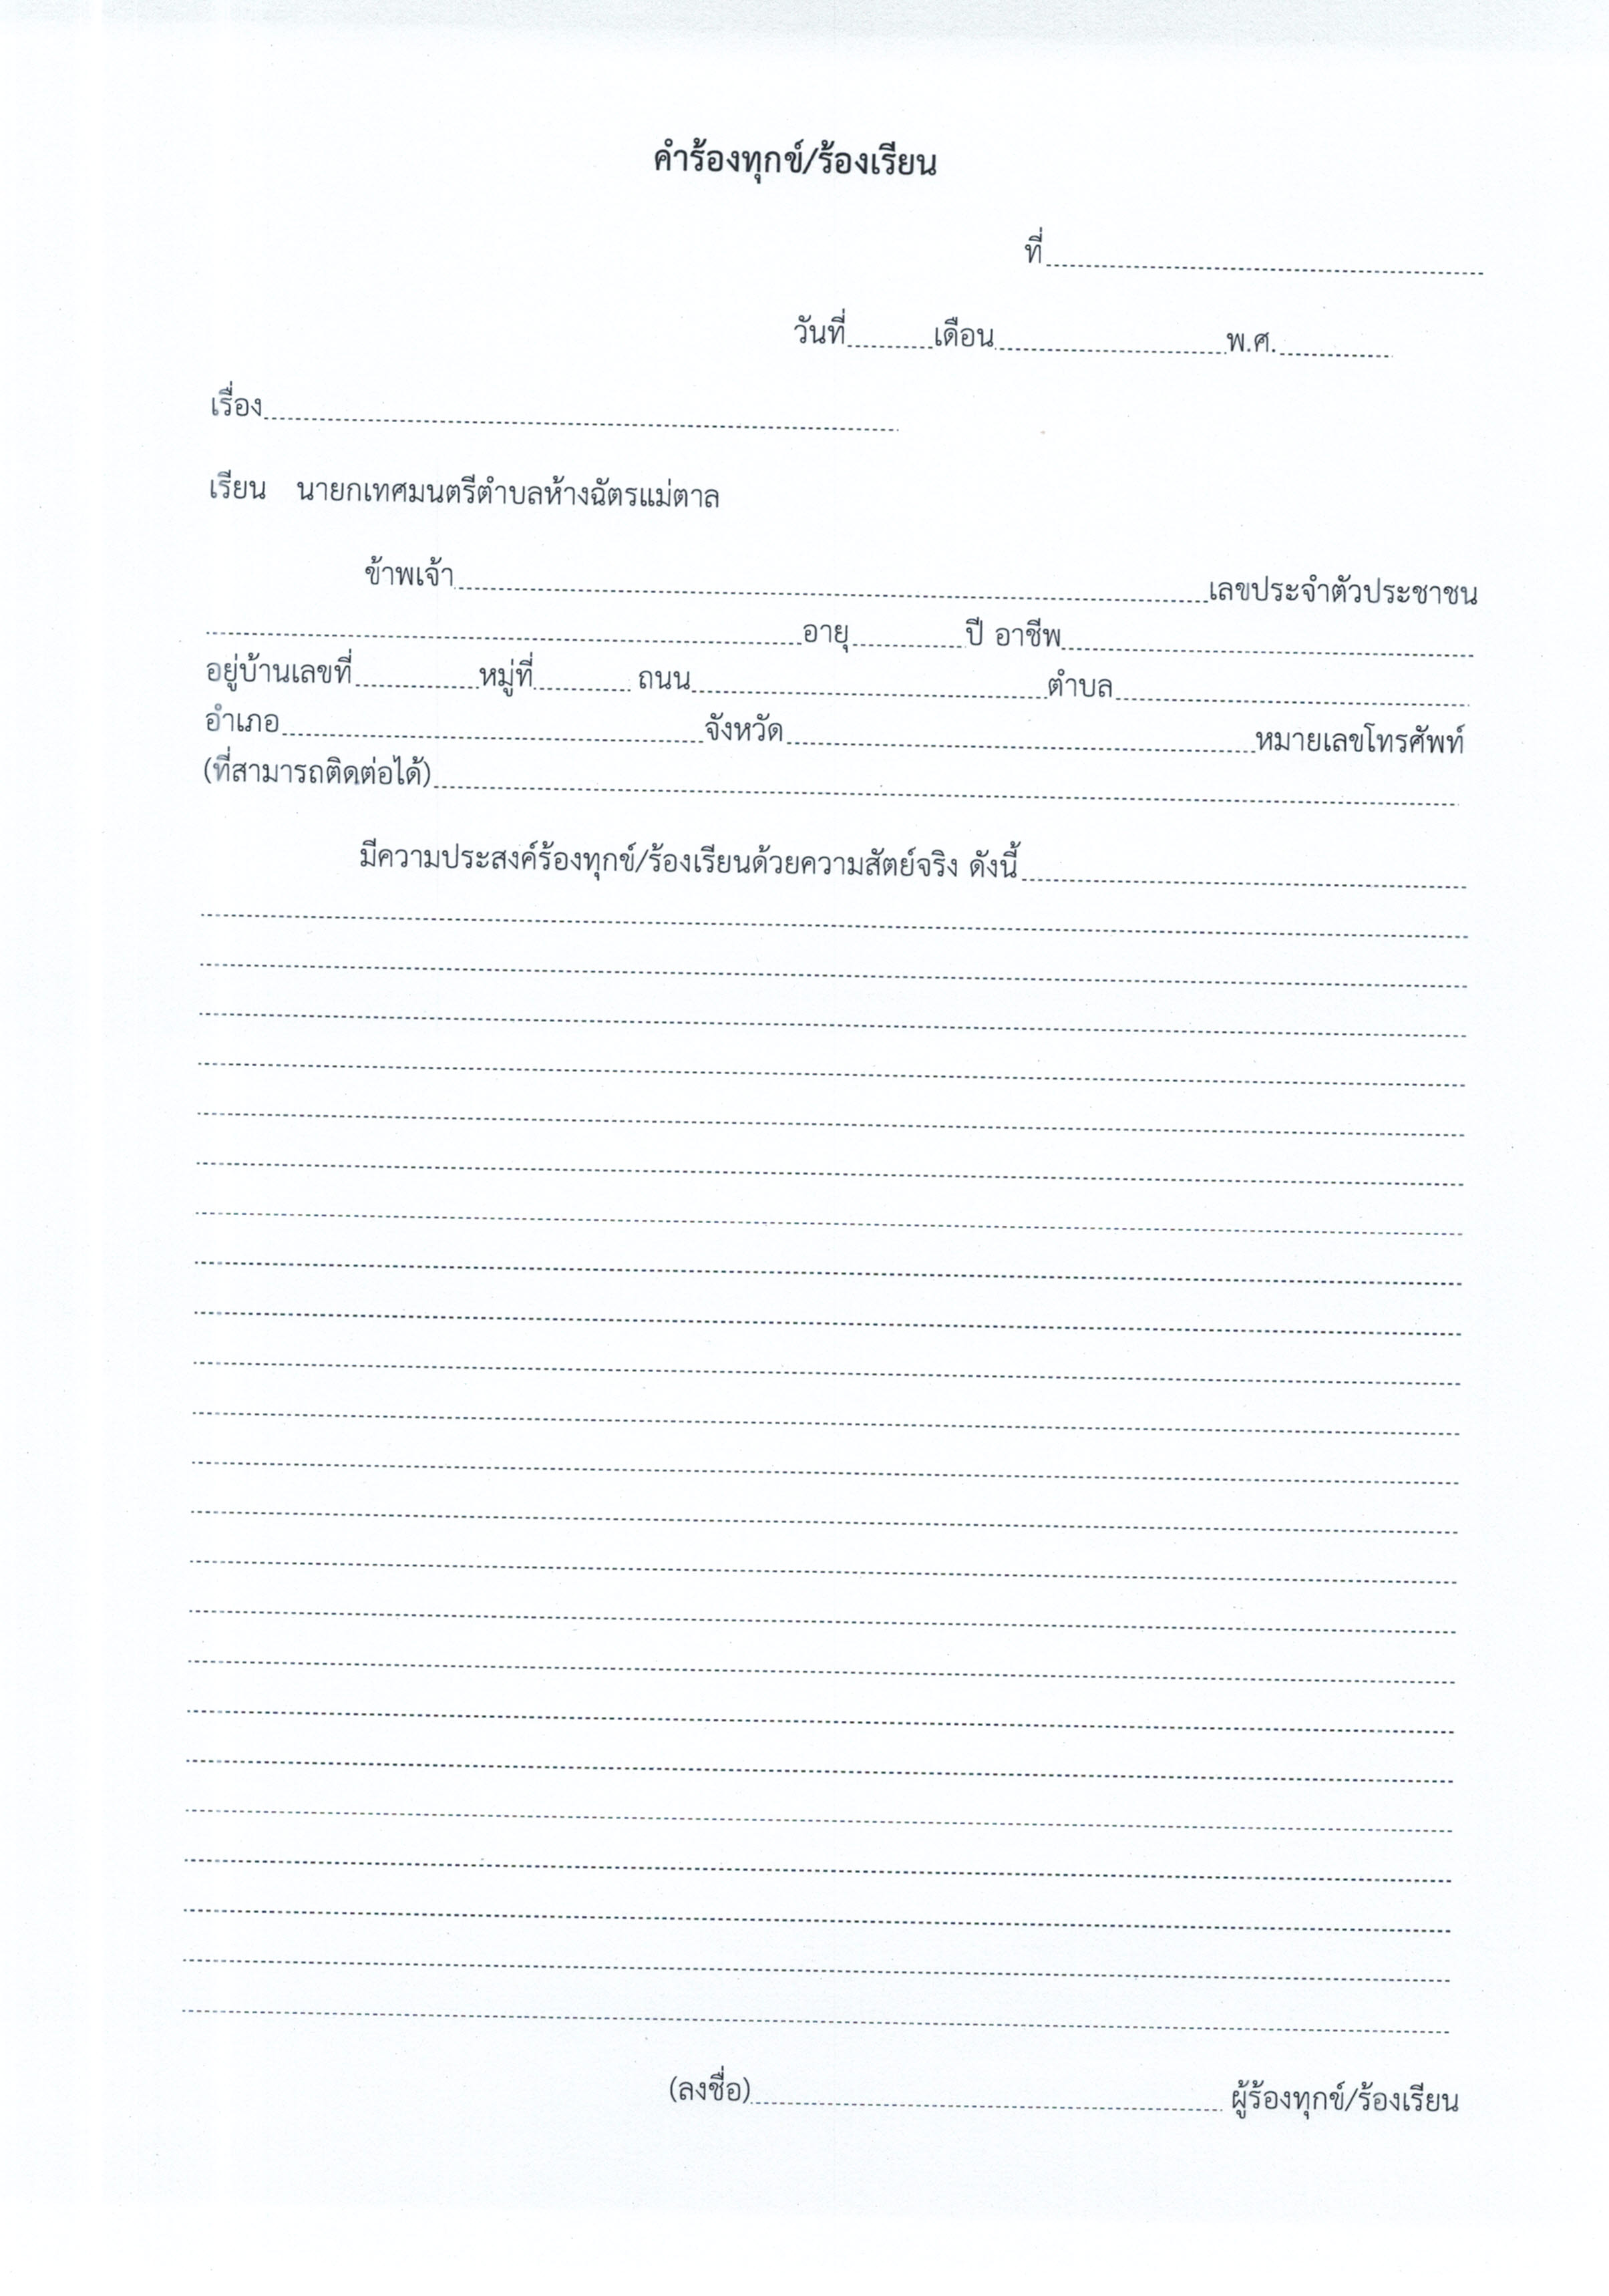 คำร้องทุกข์/ร้องเรียน
ที่
วันที่ เดือน พ.ศ.
เรื่อง
เรียน นายกเทศมนตรีตำบลห้างฉัตรแม่ตาล
ข้าพเจ้า เลขประจำตัวประชาชน
อายุ ปี อาชีพ
อยู่บ้านเลขที่ หมู่ที่ ถนน ตำบล
อำเภอ จังหวัด หมายเลขโทรศัพท์
(ที่สามารถติดต่อได้)
มีความประสงค์ร้องทุกข์/ร้องเรียนด้วยความสัตย์จริง ดังนี้
(ลงชื่อ) ผู้ร้องทุกข์/ร้องเรียน